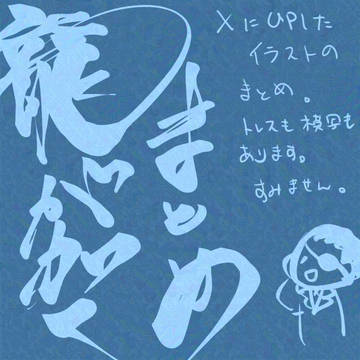 龍が如く
まとめ
XにUPした
イラストの
まとめ。
トレスも模写も
あります。
すみません。